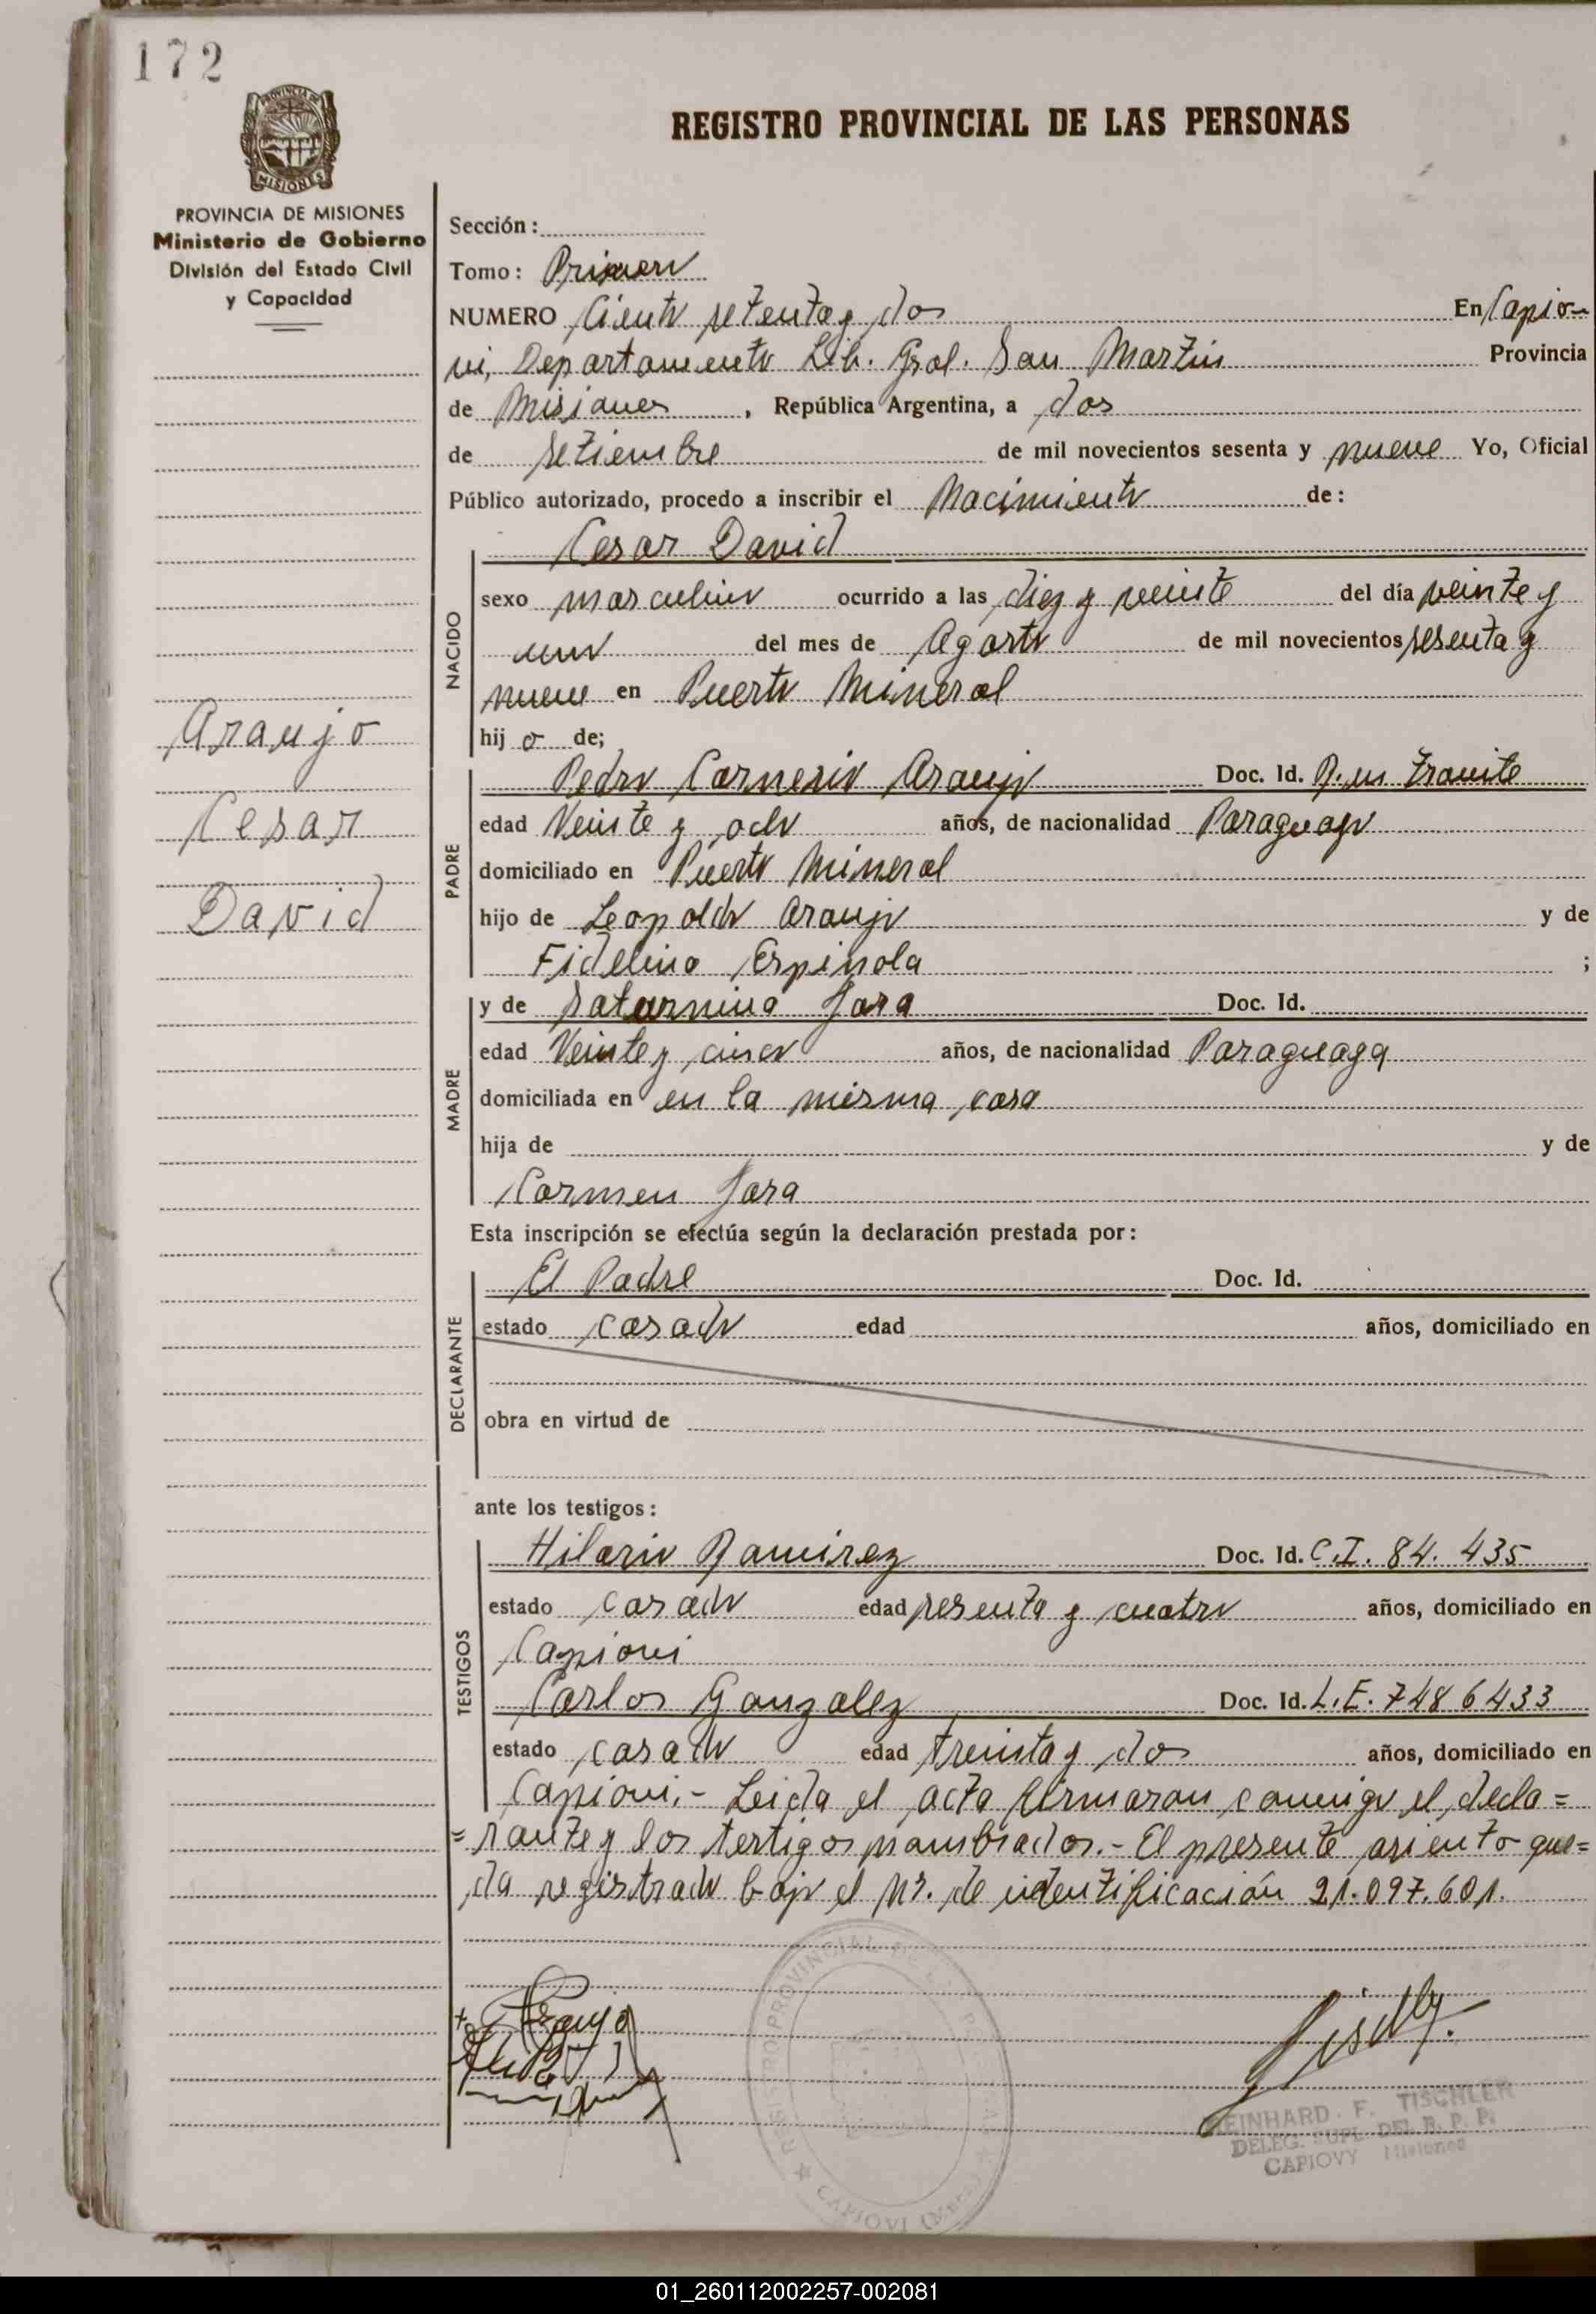 172
REGISTRO PROVINCIAL DE LAS PERSONAS
MISIONES
PROVINCIA DE MISIONES
Ministerio de Gobierno
División del Estado Civil
y Capacidad
Sección:
Tomo: Primero
NUMERO Ciento setenta y dos En Capio-
vi, Departamento Lib. Gral. San Martin Provincia
de Misiones, República Argentina, a dos
de setiembre de mil novecientos sesenta y nueve Yo, Oficial
Público autorizado, procedo a inscribir el Nacimiento de:
Cesar David
NACIDO
sexo masculino ocurrido a las diez y veinte del día veinte y
uno del mes de Agosto de mil novecientos sesenta y
nueve en Puerto Mineral
hij o de;
Araujo
Cesar
David
PADRE
Pedro Carnerio Araujo Doc. Id. R. en tramite
edad Veinte y ocho años, de nacionalidad Paraguayo
domiciliado en Puerto Mineral
hijo de Leopoldo Araujo y de
Fidelina Espinola ;
MADRE
y de Saturnina Jara Doc. Id.
edad Veinte y cinco años, de nacionalidad Paraguaya
domiciliada en en la misma casa
hija de y de
Carmen Jara
Esta inscripción se efectúa según la declaración prestada por:
DECLARANTE
El Padre Doc. Id.
estado casado edad años, domiciliado en
obra en virtud de
ante los testigos:
TESTIGOS
Hilario Ramirez Doc. Id. C.I. 84.435
estado casado edad sesenta y cuatro años, domiciliado en
Capiovi
Carlos Gonzalez Doc. Id. L.E. 7486433
estado casado edad treinta y dos años, domiciliado en
Capiovi.- Leida el acta firmaron conmigo el decla=
=rante y los testigos nombrados.- El presente asiento que=
da registrado bajo el Nº. de identificación 21.097.601.
Araujo
REGISTRO PROVINCIAL
CAPIOVI
REINHARD. F. TISCHLER
DELEG. SUPL. DEL R. P. P.
CAPIOVY Misiones
01_260112002257-002081